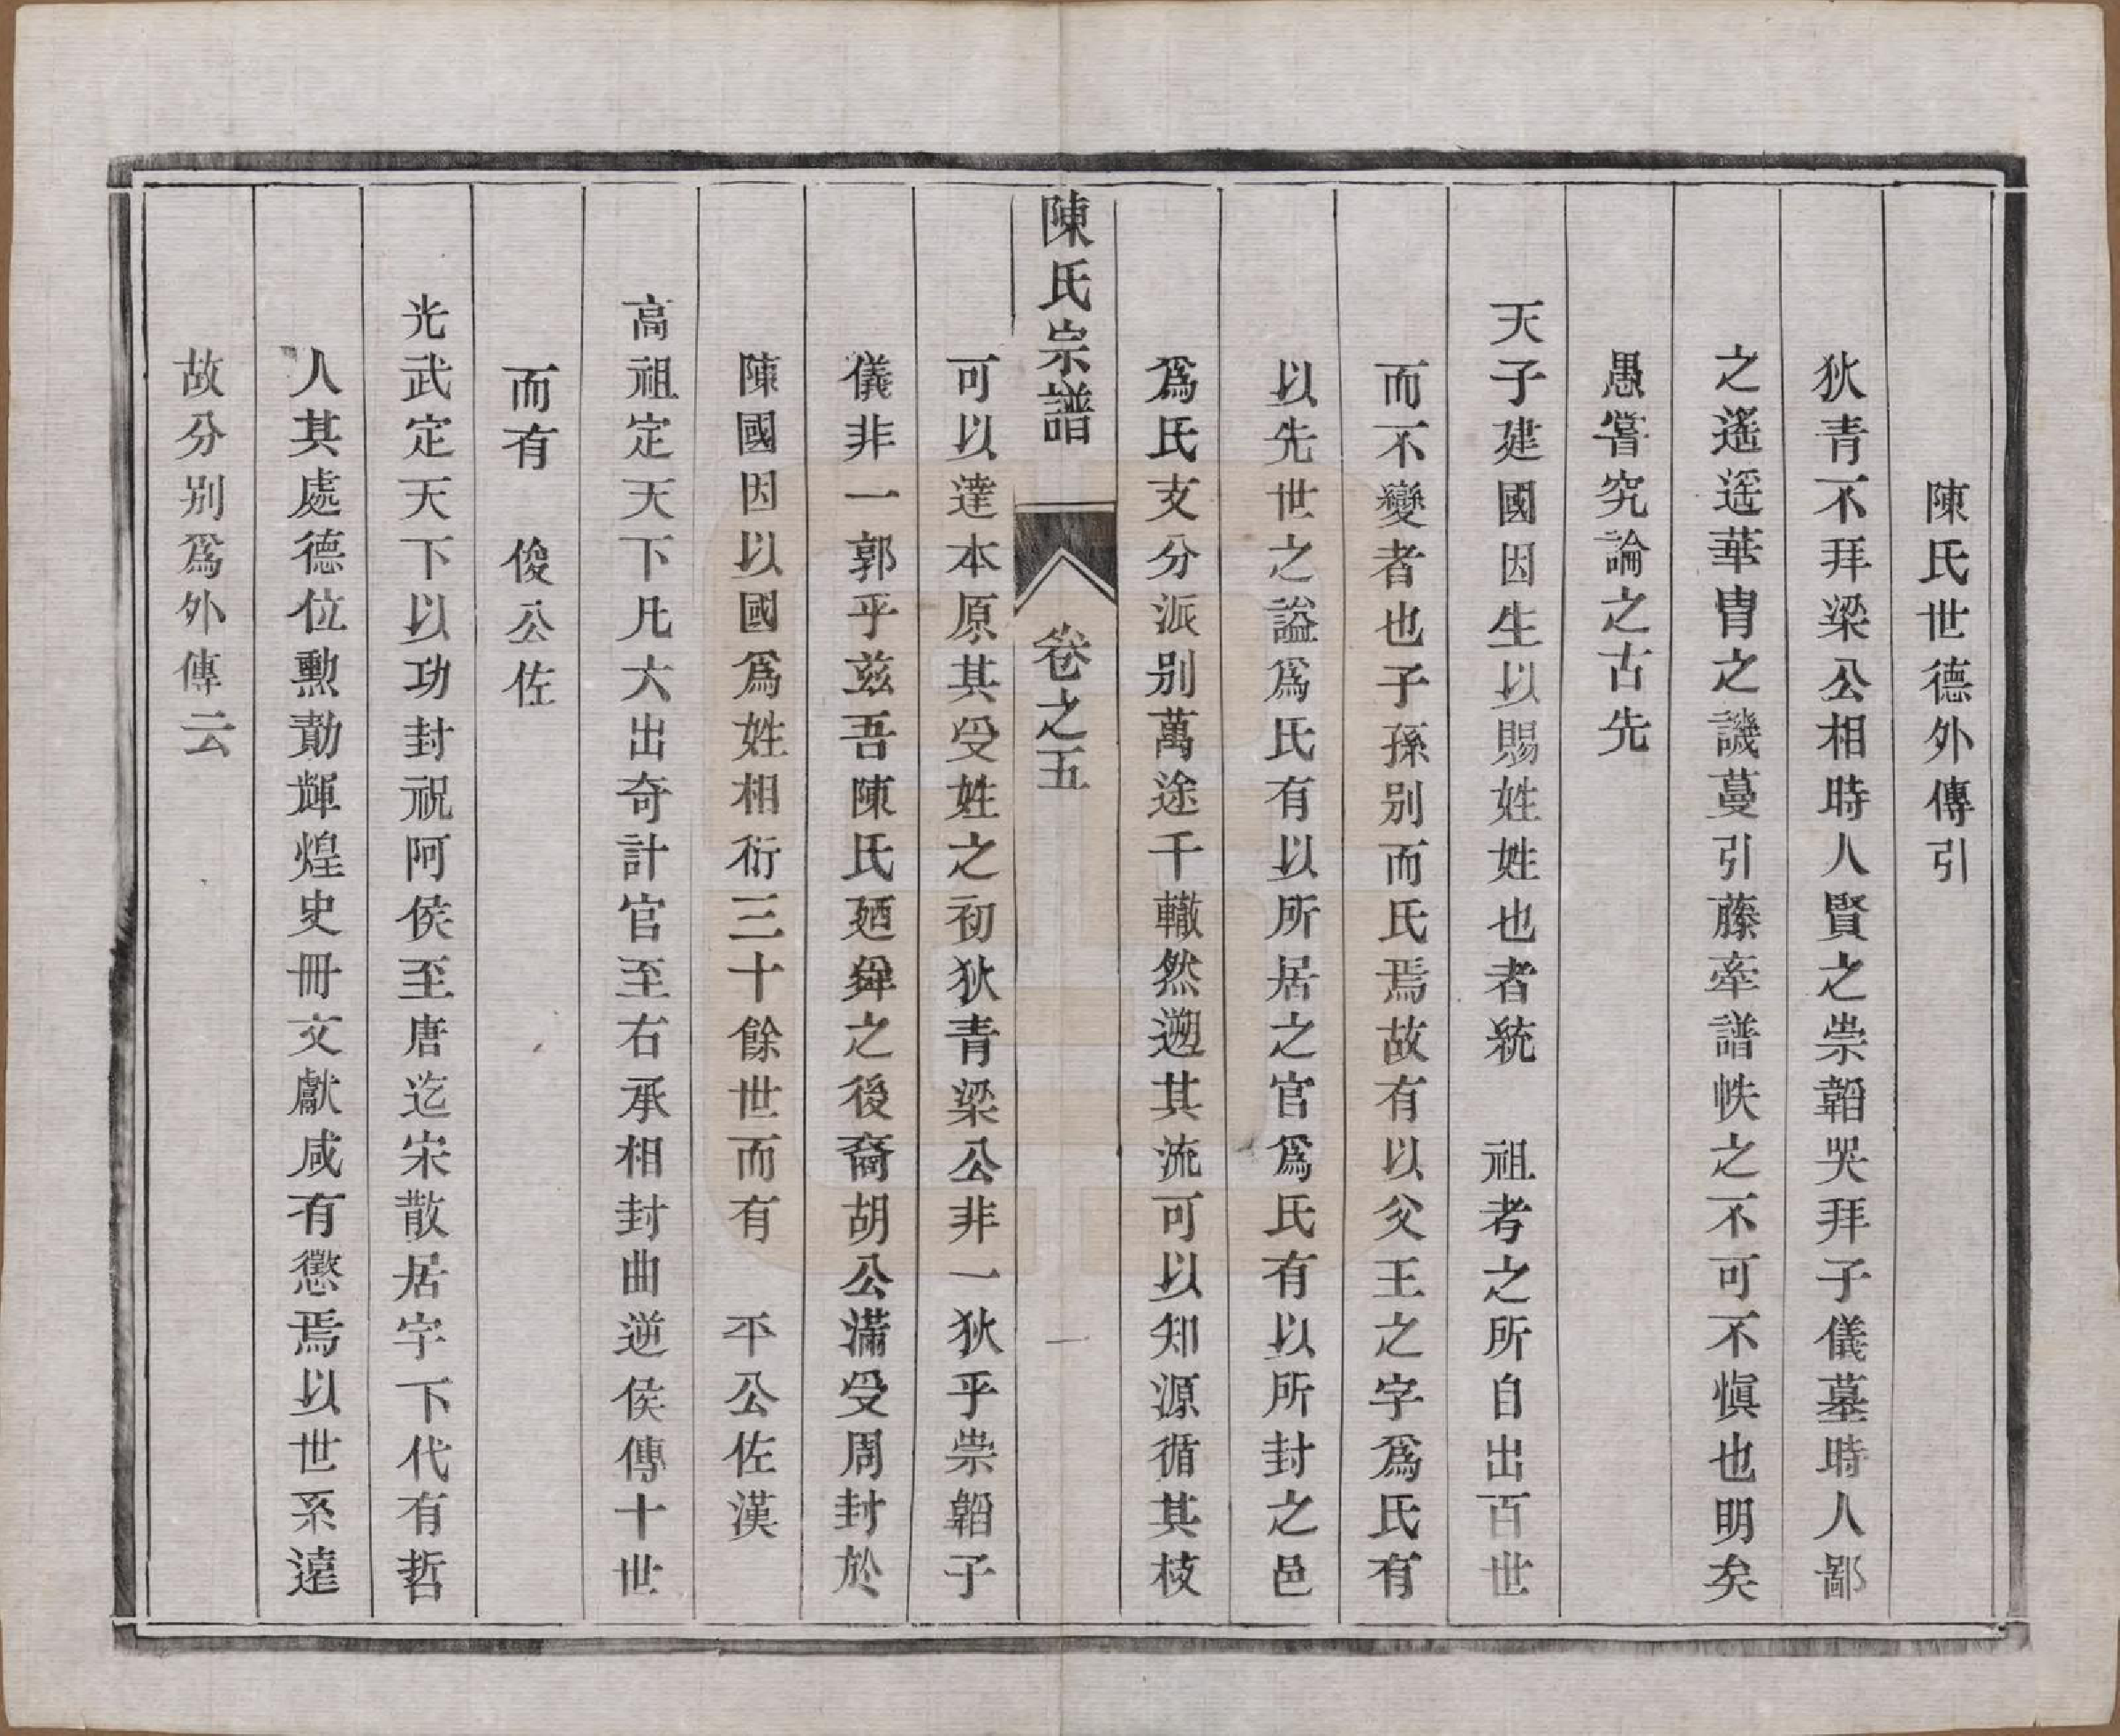 陳氏世德外傳引
狄青不拜梁公相時人賢之崇韜哭拜子儀墓時人鄙
之遙遥華胄之譏蔓引藤牽譜帙之不可不愼也明矣
愚嘗究論之古先
天子建國因生以賜姓姓也者統　祖考之所自出百世
而不變者也子孫别而氏焉故有以父王之字爲氏有
以先世之謚爲氏有以所居之官爲氏有以所封之邑
爲氏支分派别萬途千轍然遡其流可以知源循其枝
陳氏宗譜　卷之五　一
可以達本原其受姓之初狄青梁公非一狄乎崇韜子
儀非一郭乎兹吾陳氏廼舜之後裔胡公滿受周封於
陳國因以國爲姓相衍三十餘世而有　平公佐漢
高祖定天下凡六出奇計官至右承相封曲逆侯傳十世
而有　俊公佐
光武定天下以功封祝阿侯至唐迄宋散居宇下代有哲
人其處德位勲勣輝煌史冊文獻咸有懲焉以世系遠
故分别爲外傳云